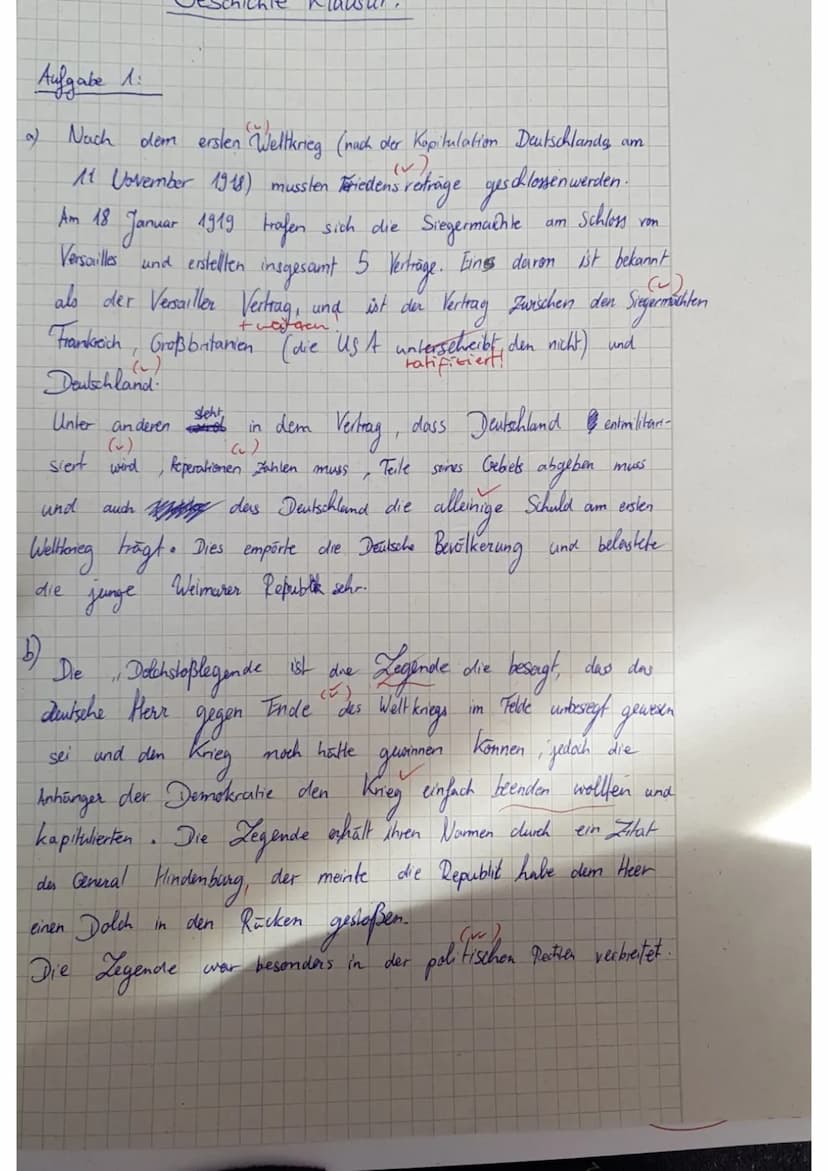 Geschichte Klausur.
Aufgabe 1:
a) Nach dem ersten Weltkrieg (nach der Kapitulation Deutschlands am
11 November 1918) mussten Friedensverträge geschlossen werden.
Am 18 Januar 1919 trafen sich die Siegermächte am Schloss von
Versailles und erstellten insgesamt 5 Verträge. Eins davon ist bekannt
als der Versailler Vertrag, und ist der Vertrag zwischen den Siegermächten
+ weiteren
Frankreich, Großbritanien (die USA unterschreibt den nicht) und
ratifiziert!
Deutschland.
Unter anderen steht in dem Vertrag, dass Deutschland entmilitari-
siert wird, Reperationen zahlen muss, Teile seines Gebiets abgeben muss
und auch das Deutschland die alleinige Schuld am ersten
Weltkrieg trägt. Dies empörte die Deutsche Bevölkerung und belastete
die junge Weimarer Republik sehr.
b) Die „Dolchstoßlegende ist die Legende die besagt, das das
deutsche Herr gegen Ende des Weltkriegs im Felde unbesiegt gewesen
sei und den Krieg noch hätte gewinnen können, jedoch die
Anhänger der Demokratie den Krieg einfach beenden wollten und
kapitulierten. Die Legende erhält ihren Namen durch ein Zitat
des General Hindenburg, der meinte die Republik habe dem Heer
einen Dolch in den Rücken gestoßen.
Die Legende war besonders in der politischen Rechten verbreitet.